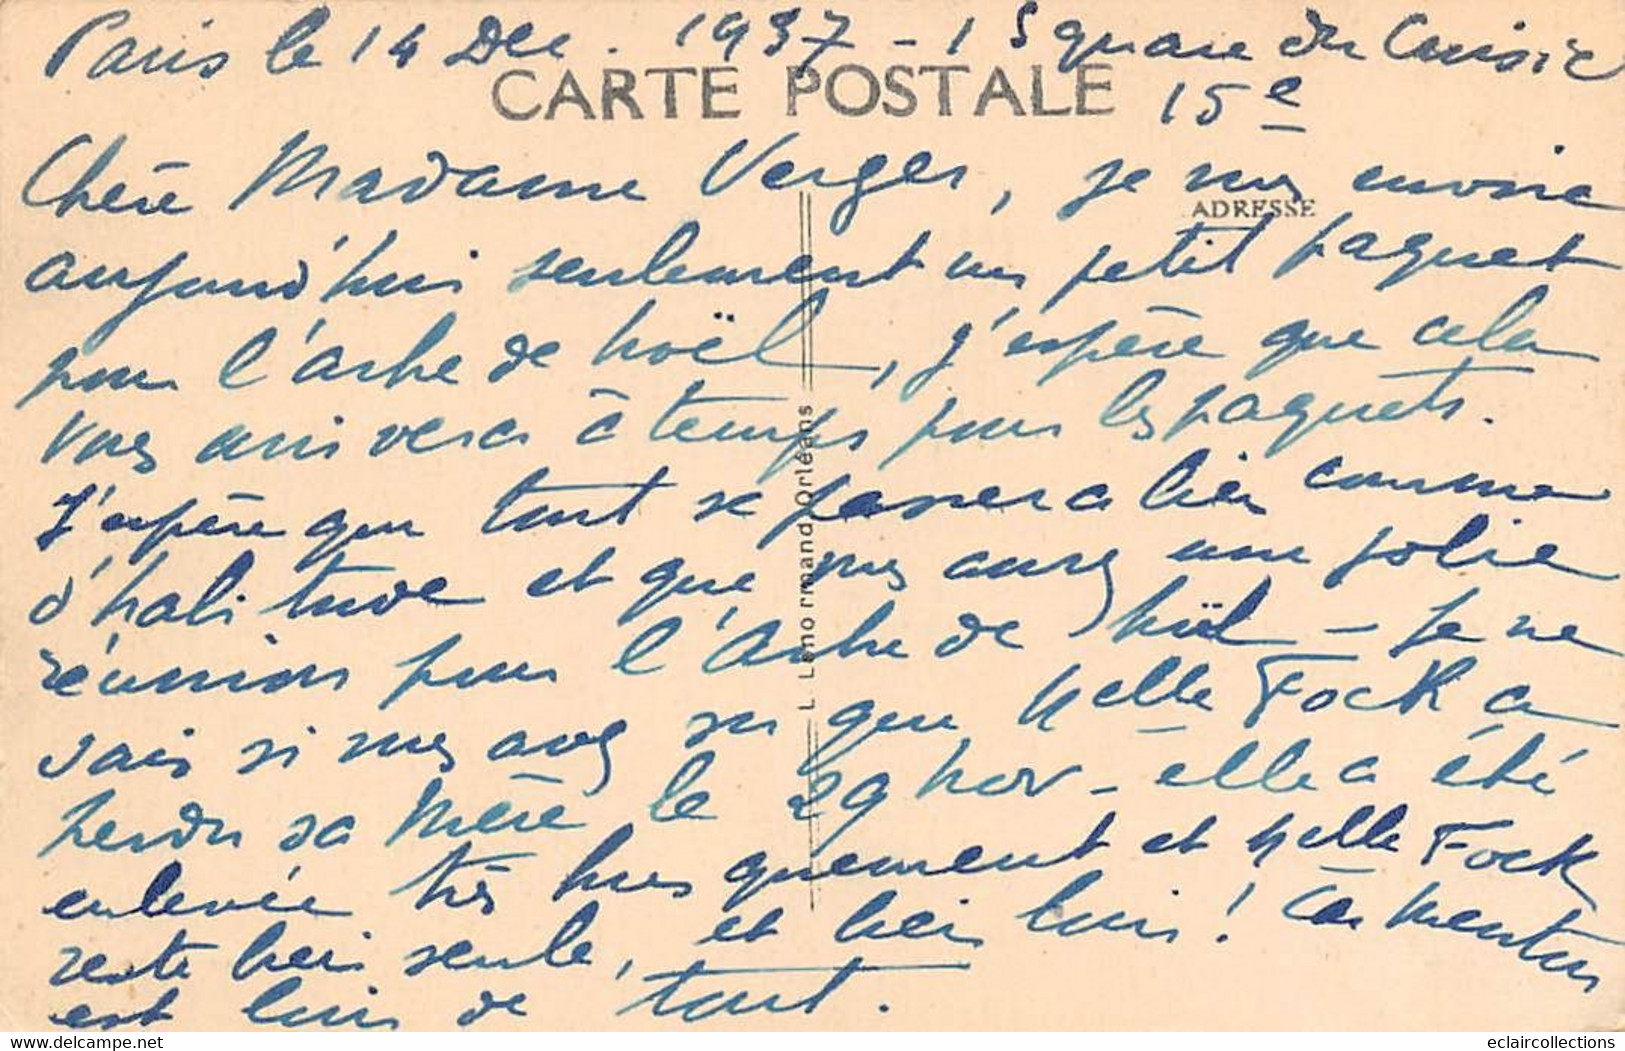 Paris le 14 Dec. 1937 - 1 Square du Croisic
CARTE POSTALE
15e
Chère Madame Verges, je vous envoie
ADRESSE
aujourd'hui seulement un petit paquet
pour l'arbre de noël, j'espère que cela
vous arrivera à temps pour les paquets.
J'espère que tout se passera bien comme
d'habitude et que vous aurez une jolie
réunion pour l'Arbre de Noël - Je ne
sais si vous avez su que Melle Fock a
perdu sa mère le 29 nov - elle a été
enlevée très brusquement et Melle Fock
reste bien seule, et bien loin! Car Menton
est loin de tout.
L. Lenormand, Orléans
eclaircollections
www.delcampe.net